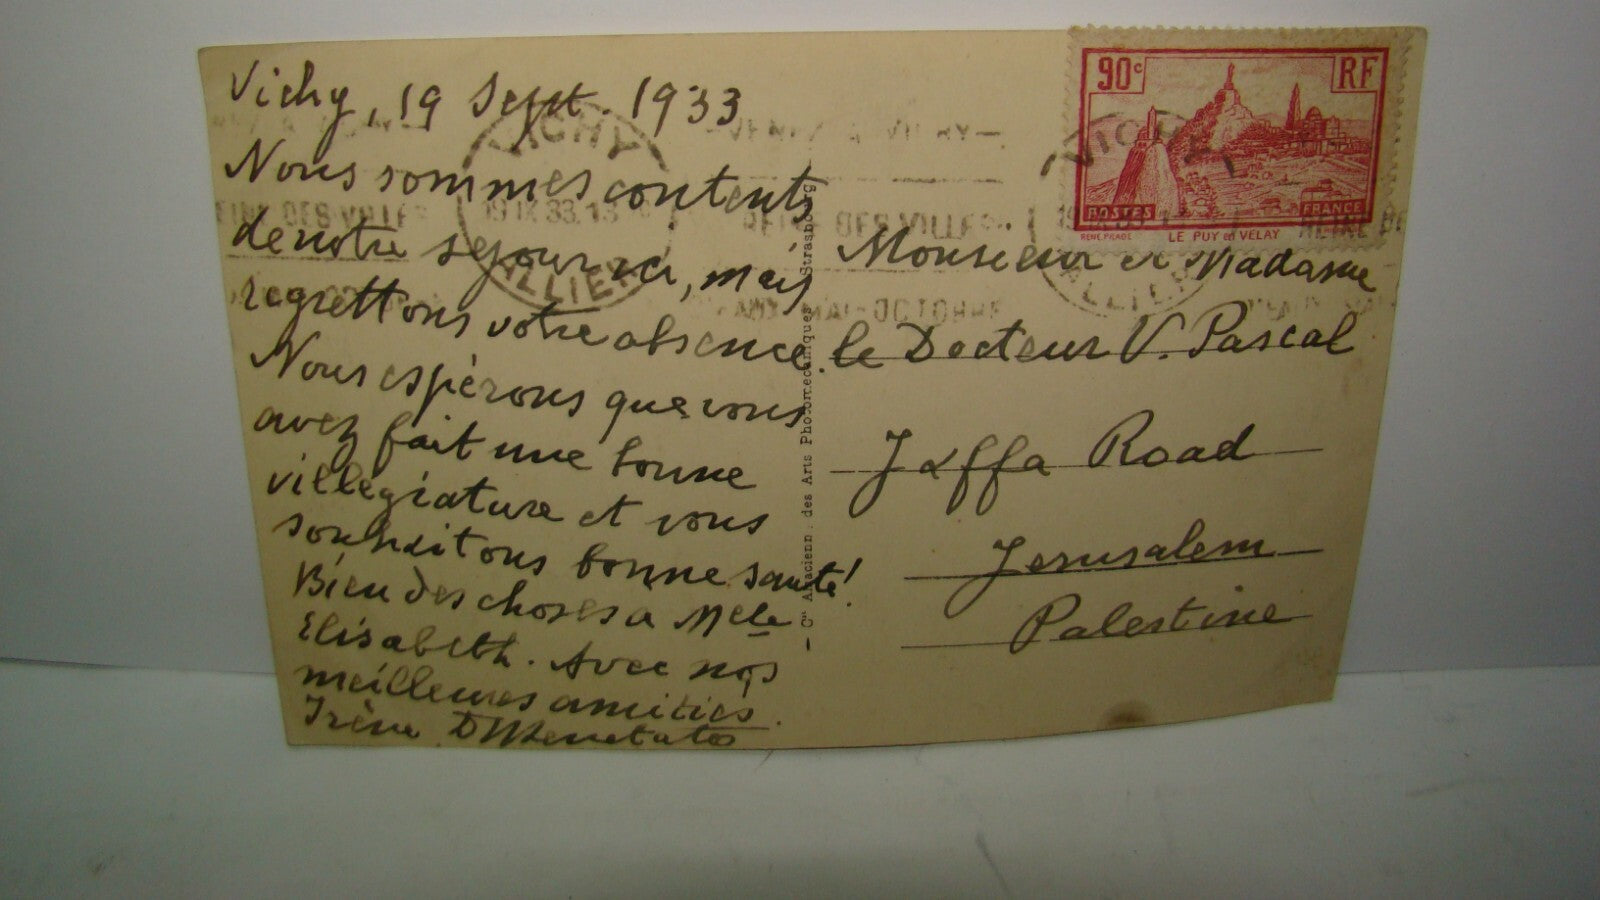 Vichy, 19 Sept. 1933
Nous sommes contents
de notre sejour ici, mais
regrettons votre absence.
Nous espérons que vous
avez fait une bonne
villegiature et vous
souhaitons bonne santé!
Bien des choses à Melle
Elisabeth. Avec nos
meilleures amitiés.
Irène
VICHY
19 IX 33
ALLIER
REINE DES VILLES
MAI-OCTOBRE
Cie Alsacienne des Arts Photomecaniques Strasbourg
90c RF
POSTES FRANCE
LE PUY en VELAY
VICHY
Monsieur et Madame
le Docteur V. Pascal
Jaffa Road
Jerusalem
Palestine